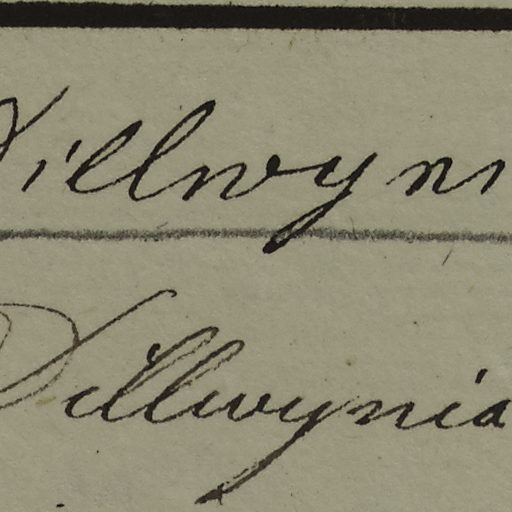 Dillwyni
Dillwynia